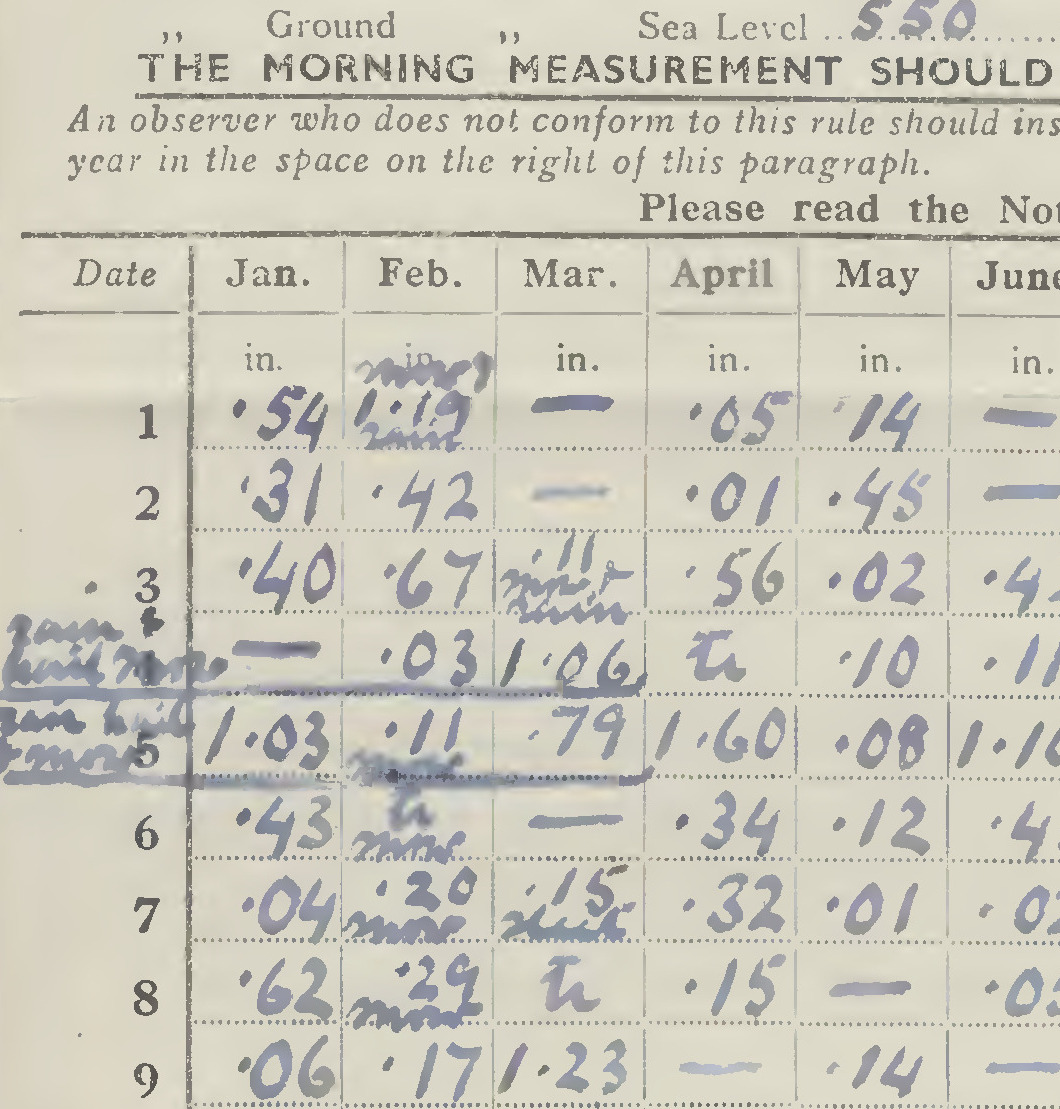 „ Ground „ Sea Level .. 550
THE MORNING MEASUREMENT SHOULD
An observer who does not conform to this rule should ins
year in the space on the right of this paragraph.
Please read the Not
Date Jan. Feb. Mar. April May June
in. in. in. in. in. in.
snow
1 ·54 1·19 — ·05 ·14 —
rain
2 ·31 ·42 — ·01 ·45 —
3 ·40 ·67 ·11 ·56 ·02 ·4
rain
rain +
hail snow — ·03 1·06 tr ·10 ·11
rain hail
+ snow 5 1·03 ·11 ·79 1·60 ·08 1·10
snow
6 ·43 tr — ·34 ·12 ·4
snow
7 ·04 ·20 ·15 ·32 ·01 ·0
snow
8 ·62 ·29 tr ·15 — ·0
snow
9 ·06 ·17 1·23 — ·14 —